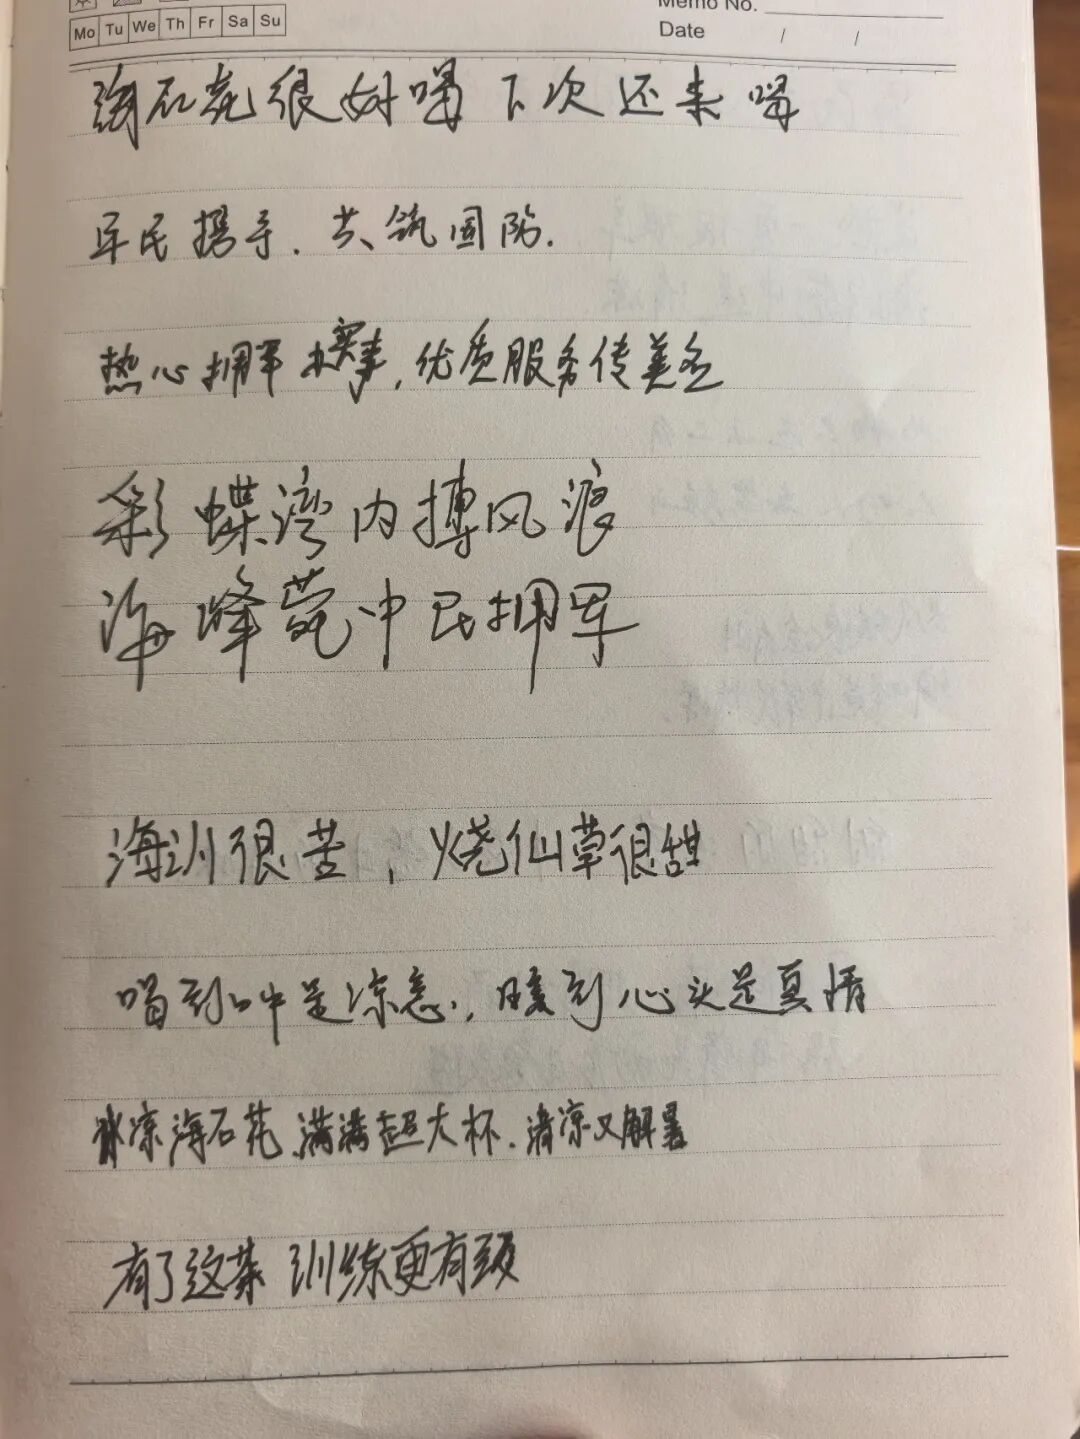 Mo Tu We Th Fr Sa Su
Memo No.
Date / /
海石花很好喝 下次还来喝
军民携手.共筑国防.
热心拥军办实事,优质服务传美名
彩蝶湾内搏风浪
海峰苑中民拥军
海训很苦,烧仙草很甜
喝到口中是凉意,暖到心头是真情
冰凉海石花.满满超大杯.清凉又解暑
有了这茶 训练更有劲